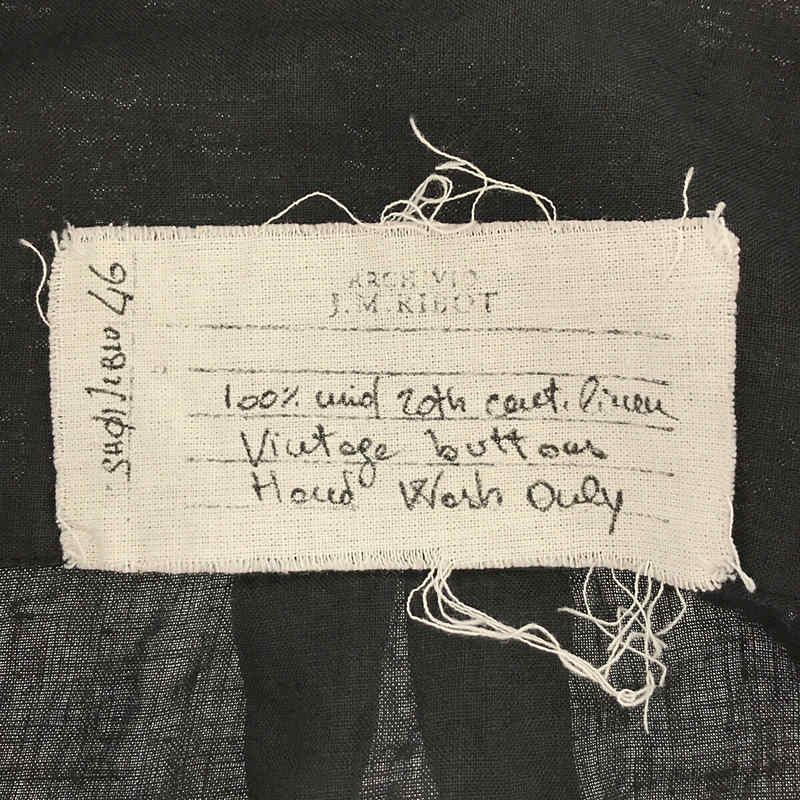 ARCHIVIO
J.M.RIBOT
100% mid 20th cent. linen
Vintage buttons
Hand Wash Only
46